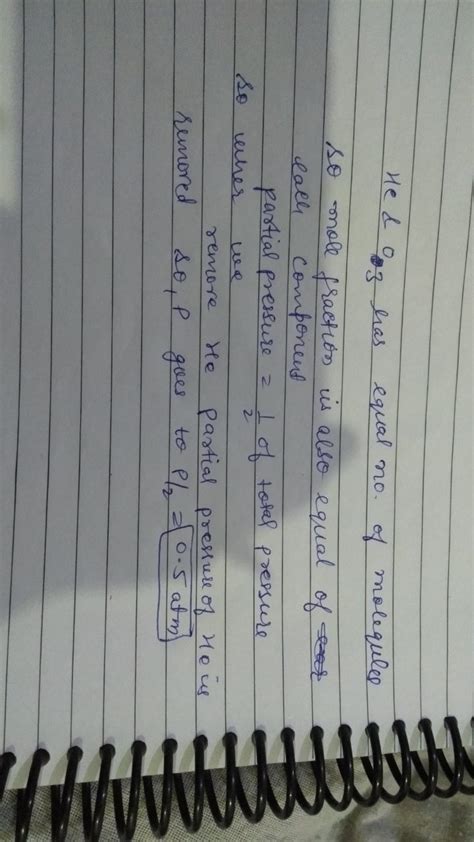 He & O3 has equal no. of molequles
so mole fraction is also equal of
each component
partial pressure = 1/2 of total pressure
so when we
remove He partial pressure of He is
removed so, P goes to P/2 = 0.5 atm